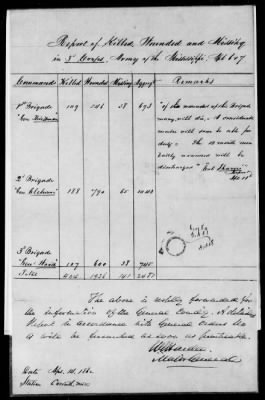 Report of Killed, Wounded and Missing
in 3d Corps, Army of the Mississippi, Apl 6 & 7
Commands Killed Wounded Missing Aggregt Remarks
1st Brigade
"Gen Hindman" 109 546 38 693
"of the wounded of the Brigade
many will die. A considerable
number will soon be able for
duty.
discharged"
2d Brigade
"Gen Cleburn" 188 790 65 1043
3d Brigade
"Gen Wood" 107 600 38 745
Total 404 1936 141 2481
The above is respectfully forwarded for
the information of the General Comdg. A detailed
Report in accordance with General orders No
will be furnished as soon as practicable.
Major General
Date Apr. 14, 186
Station Corinth, Miss